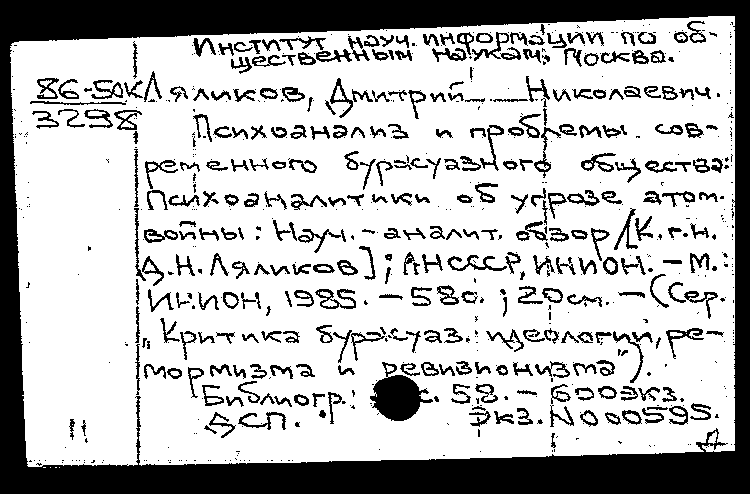 Институт науч. информации по об-
щественным наукам, Москва.
86-50К
3298
Ляликов, Дмитрий Николаевич.
Психоанализ и проблемы сов-
ременного буржуазного общества:
Психоаналитики об угрозе атом.
войны: Науч.-аналит. обзор / [К.г.н.
Д.Н.Ляликов]; АНСССР, ИНИОН. - М.:
ИНИОН, 1985. - 58с. ; 20см. - (Сер.
"Критика буржуаз. идеологии, ре-
формизма и ревизионизма").
Библиогр.: с. 58. - 600экз.
ДСП. Экз. N000595.
11